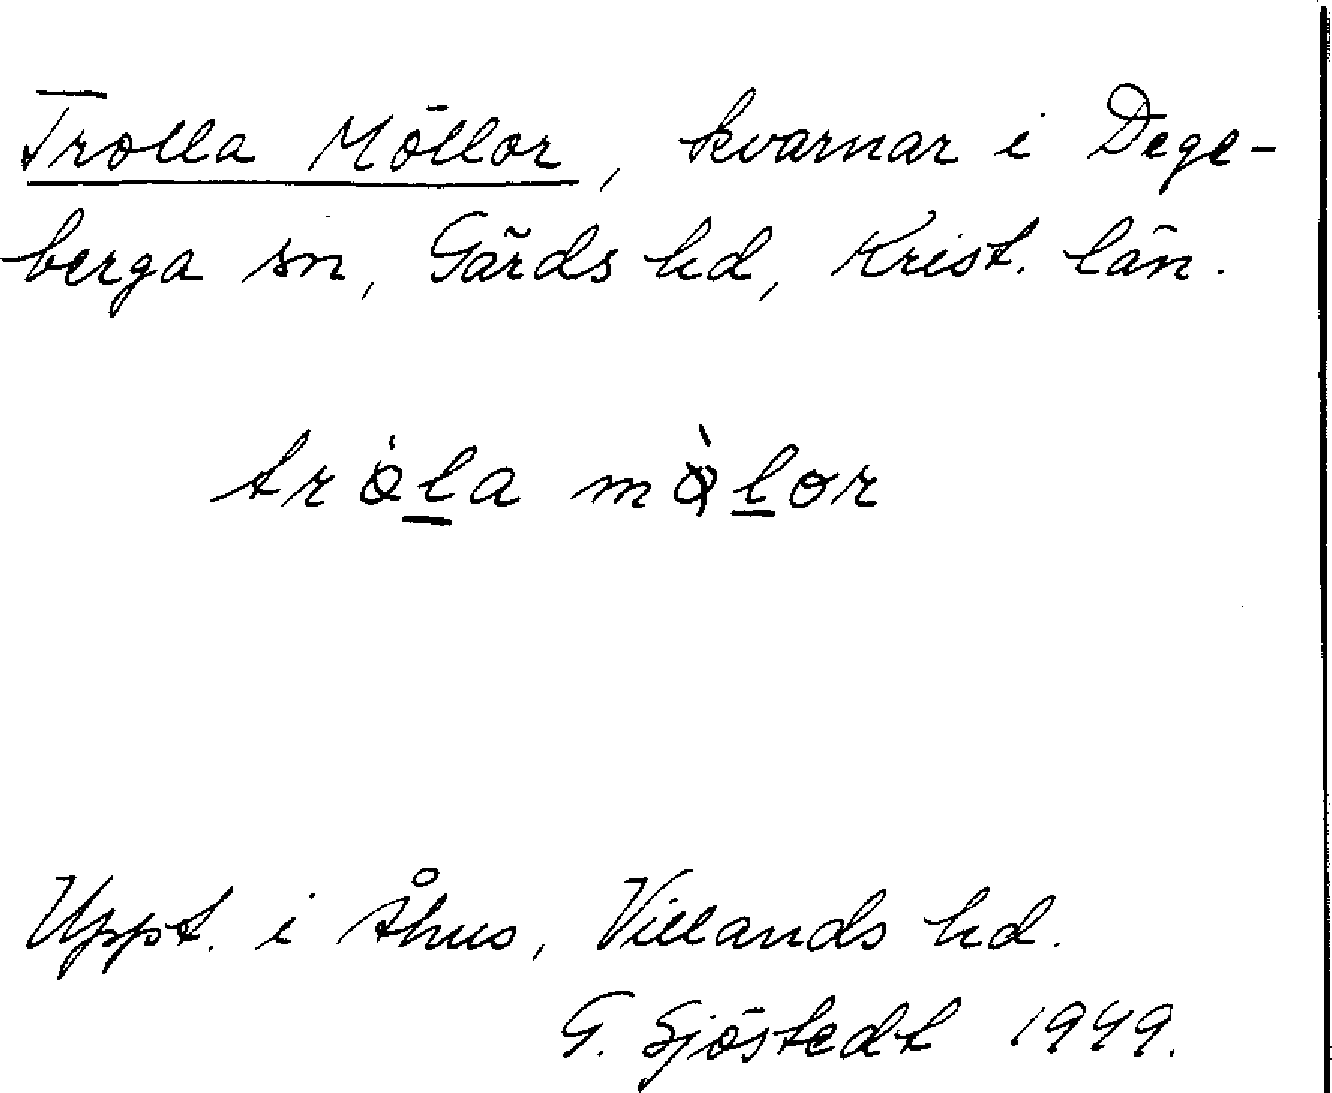 Trolla Möllor, kvarnar i Dege-
berga sn, Gärds hd, Krist. län.
tròla mò̀lor
Uppt. i Åhus, Villands hd.
G. Sjöstedt 1949.